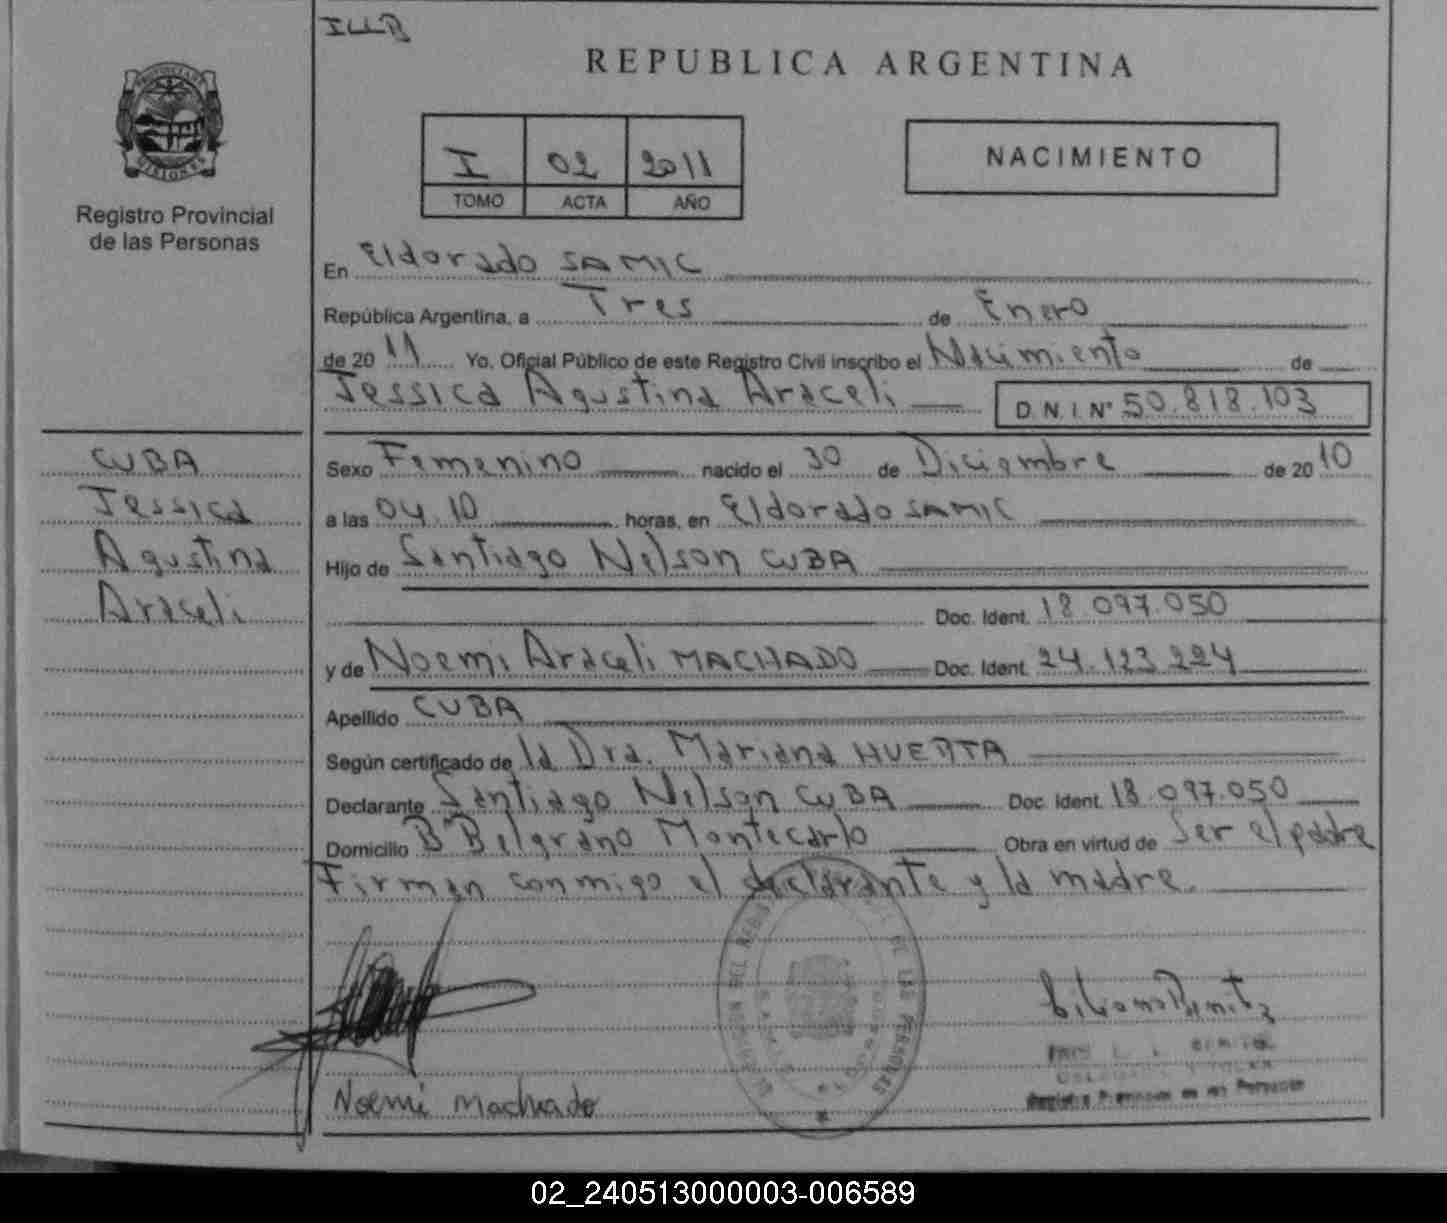 ILLB
REPUBLICA ARGENTINA
PROVINCIA DE MISIONES
Registro Provincial
de las Personas
I 02 2011
TOMO ACTA AÑO
NACIMIENTO
En Eldorado SAMIC
República Argentina, a Tres de Enero
de 20 11 Yo, Oficial Público de este Registro Civil inscribo el Nacimiento de
Jessica Agustina Araceli D.N.I. N° 50.818.103
CUBA
Jessica
Agustina
Araceli
Sexo Femenino nacido el 30 de Diciembre de 20 10
a las 04.10 horas, en Eldorado SAMIC
Hijo de Santiago Nelson CUBA
Doc. Ident. 18.097.050
y de Noemi Araceli MACHADO Doc. Ident. 24.123.224
Apellido CUBA
Según certificado de la Dra. Mariana HUERTA
Declarante Santiago Nelson CUBA Doc. Ident. 18.097.050
Domicilio B° Belgrano Montecarlo Obra en virtud de Ser el padre
Firman conmigo el declarante y la madre.
Noemi Machado
02_240513000003-006589